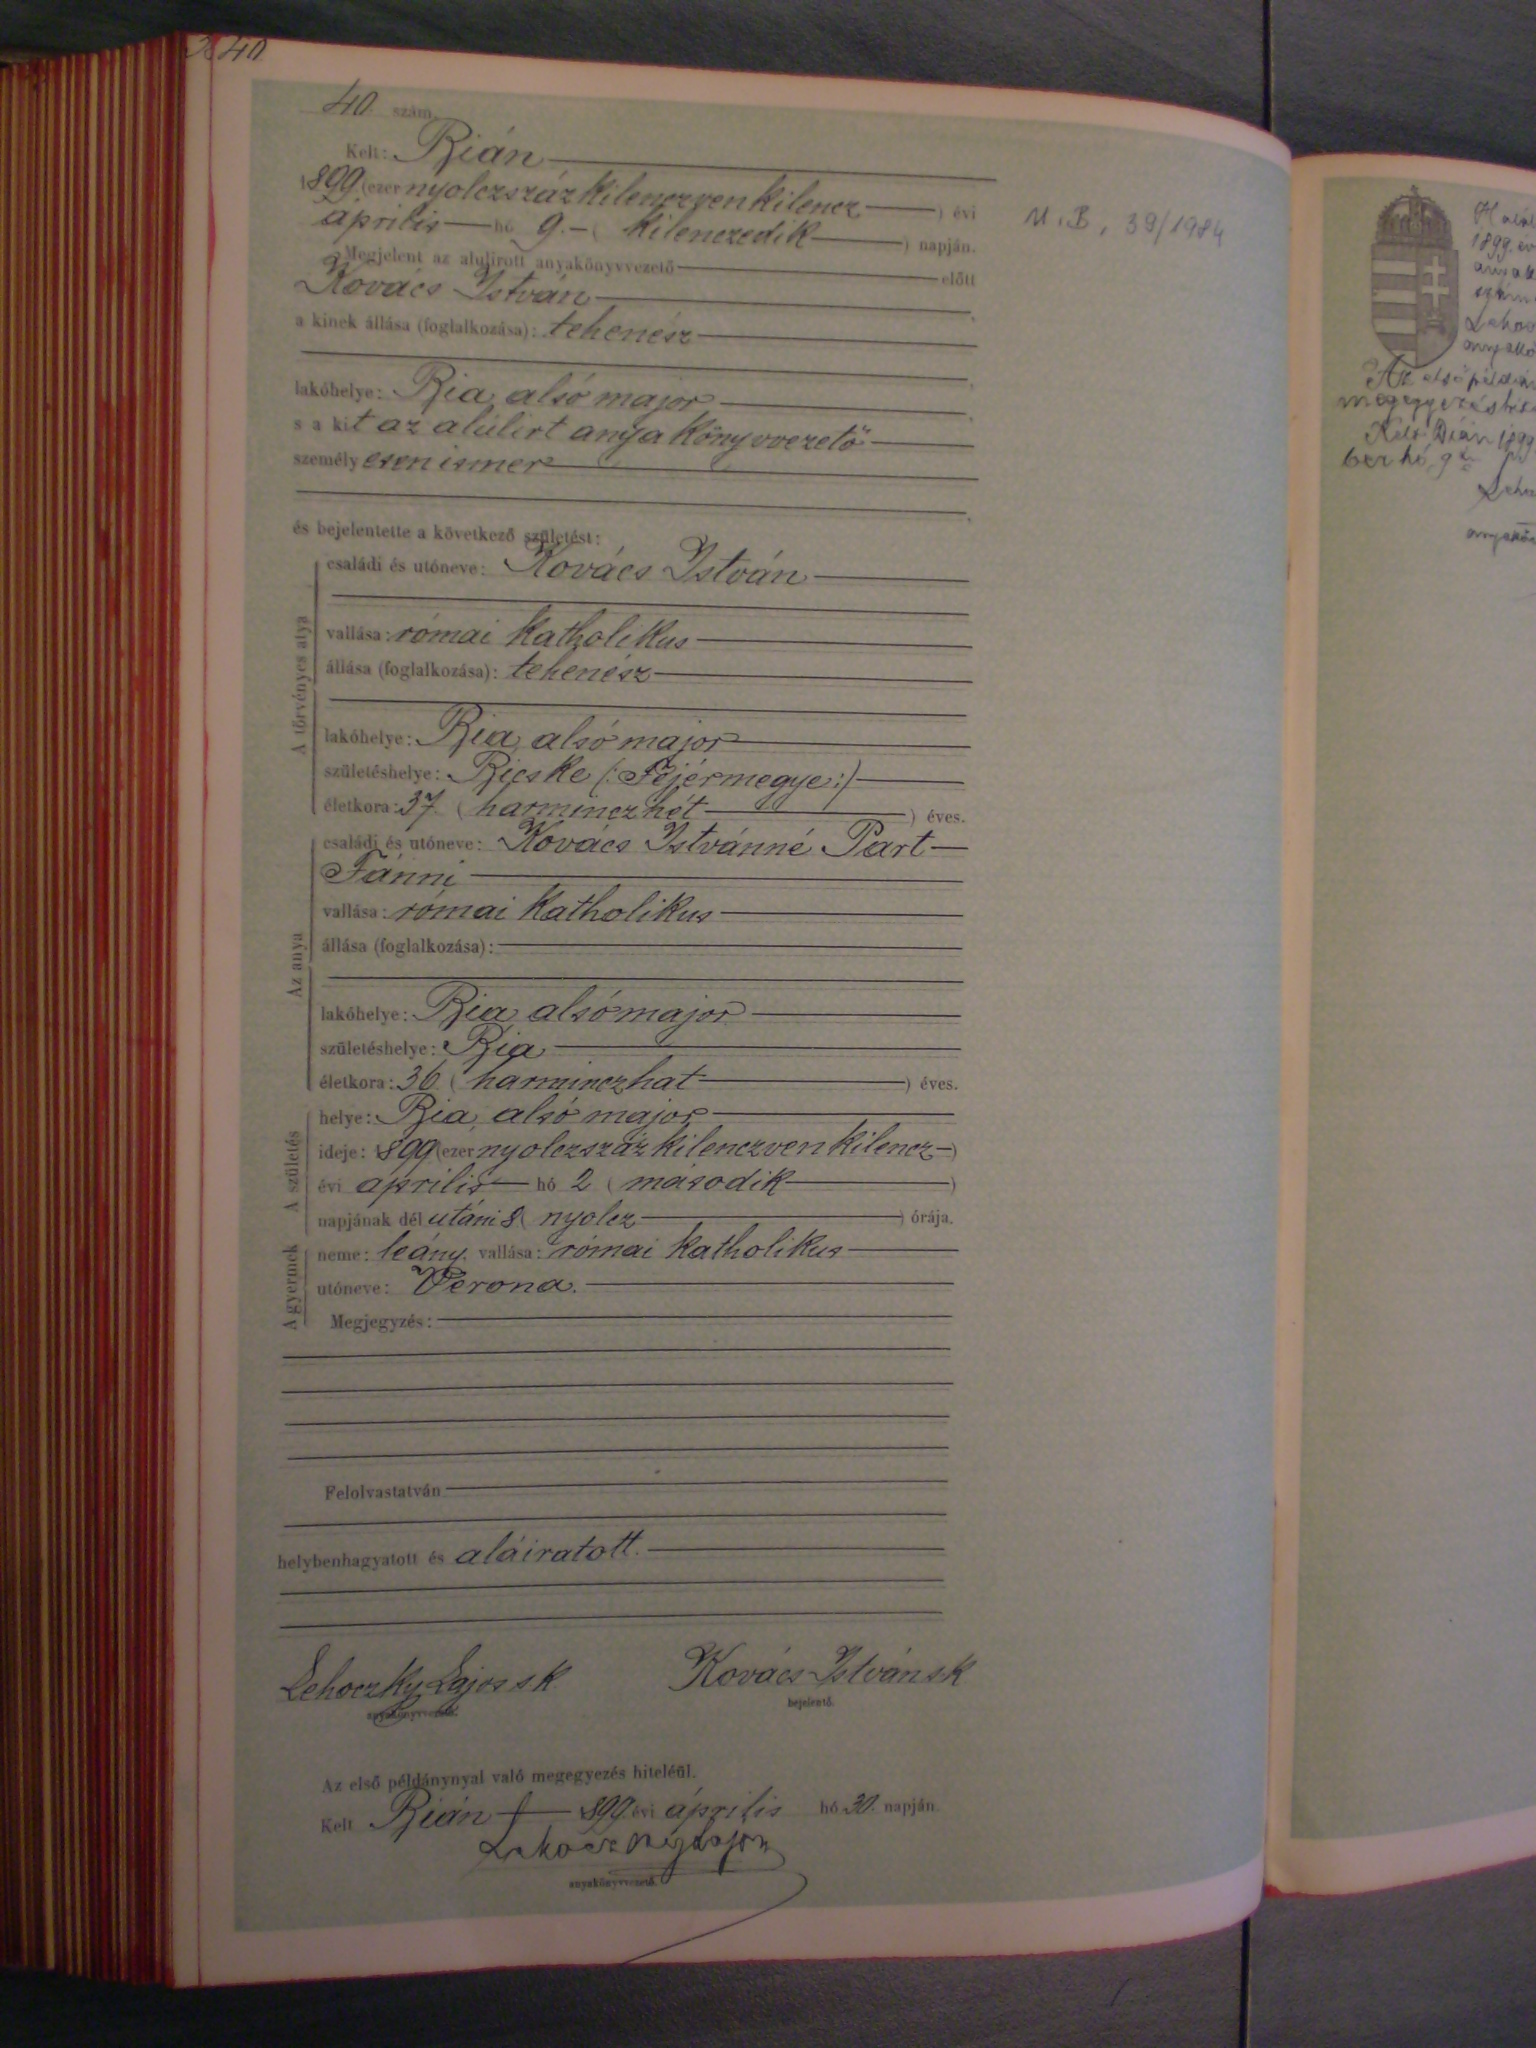 40
40 szám.
Kelt: Bián
1899 (ezer nyolczszáz kilenczven kilencz ) évi
április hó 9.- ( kilenczedik ) napján.
Megjelent az alulirott anyakönyvvezető előtt
Kovács István
a kinek állása (foglalkozása): tehenész
lakóhelye: Bia alsó major
s a kit az alúlirt anyakönyvvezető
személyesen ismer
és bejelentette a következő születést:
A törvényes atya
családi és utóneve: Kovács István
vallása: római katholikus
állása (foglalkozása): tehenész
lakóhelye: Bia, alsó major
születéshelye: Bicske (: Fejérmegye :)
életkora: 37. ( harmincz hét ) éves.
Az anya
családi és utóneve: Kovács Istvánné Part
Fánni
vallása: római katholikus
állása (foglalkozása):
lakóhelye: Bia, alsó major
születéshelye: Bia
életkora: 36 ( harmincz hat ) éves.
A születés
helye: Bia, alsó major
ideje: 1899 (ezer nyolczszáz kilenczven kilencz )
évi április hó 2 ( második )
napjának dél utáni 8 ( nyolcz ) órája.
A gyermek
neme: leány. vallása: római katholikus
utóneve: Verona.
Megjegyzés:
Felolvastatván
helybenhagyatott és aláiratott.
Lehoczky Lajos sk Kovács István sk
anyakönyvvezető. bejelentő.
Az első példánynyal való megegyezés hiteléül.
Kelt Bián 1899 évi április hó 30. napján
Lehoczky Lajos
anyakönyvvezető.
M. B, 39/1984
1899. év
Az első példán
Kelt Bián 1899
ber hó 9